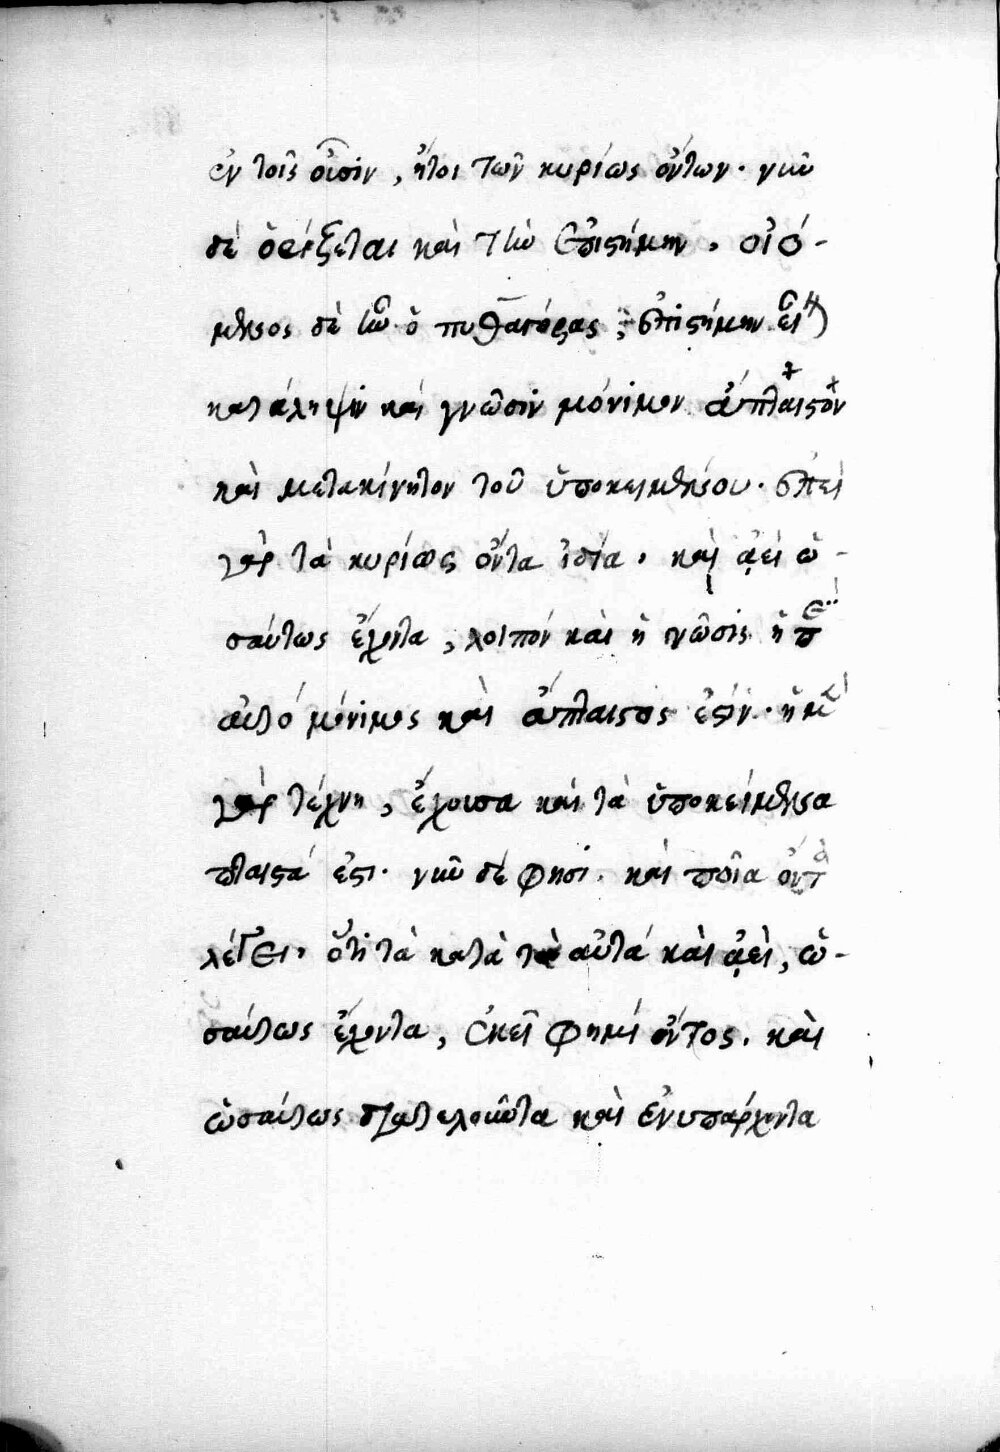 ἐν τοῖς οὖσιν, ἤτοι τῶν κυρίως ὄντων. νῦν
δὲ ὀρέξεται καὶ τὴν ἐπιστήμην. οἰό-
μενος δὲ ἦν ὁ πυθαγόρας, ἐπιστήμην εἶναι
κατάληψιν καὶ γνῶσιν μόνιμον ἄπταιστον
καὶ μετακίνητον τοῦ ὑποκειμένου. ἐπεὶ
γὰρ τὰ κυρίως ὄντα ἰδία. καὶ ἀεὶ ὡ-
σαύτως ἔχοντα, λοιπὸν καὶ ἡ γνῶσις ἡ περὶ
αὐτὸ μόνιμος καὶ ἄπταιστος ἐστίν. ἡ μὲν
γὰρ τέχνη, ἔχουσα καὶ τὰ ὑποκείμενα
πταιστά ἐστι. νῦν δέ φησι. καὶ ποῖα ὄντα
λέγει. ὅτι τὰ κατὰ τὰ αὐτὰ καὶ ἀεὶ, ὡ-
σαύτως ἔχοντα, ἐκεῖ φημὶ ὄντος. καὶ
ὡσαύτως διατελοῦντα καὶ ἐνυπάρχοντα